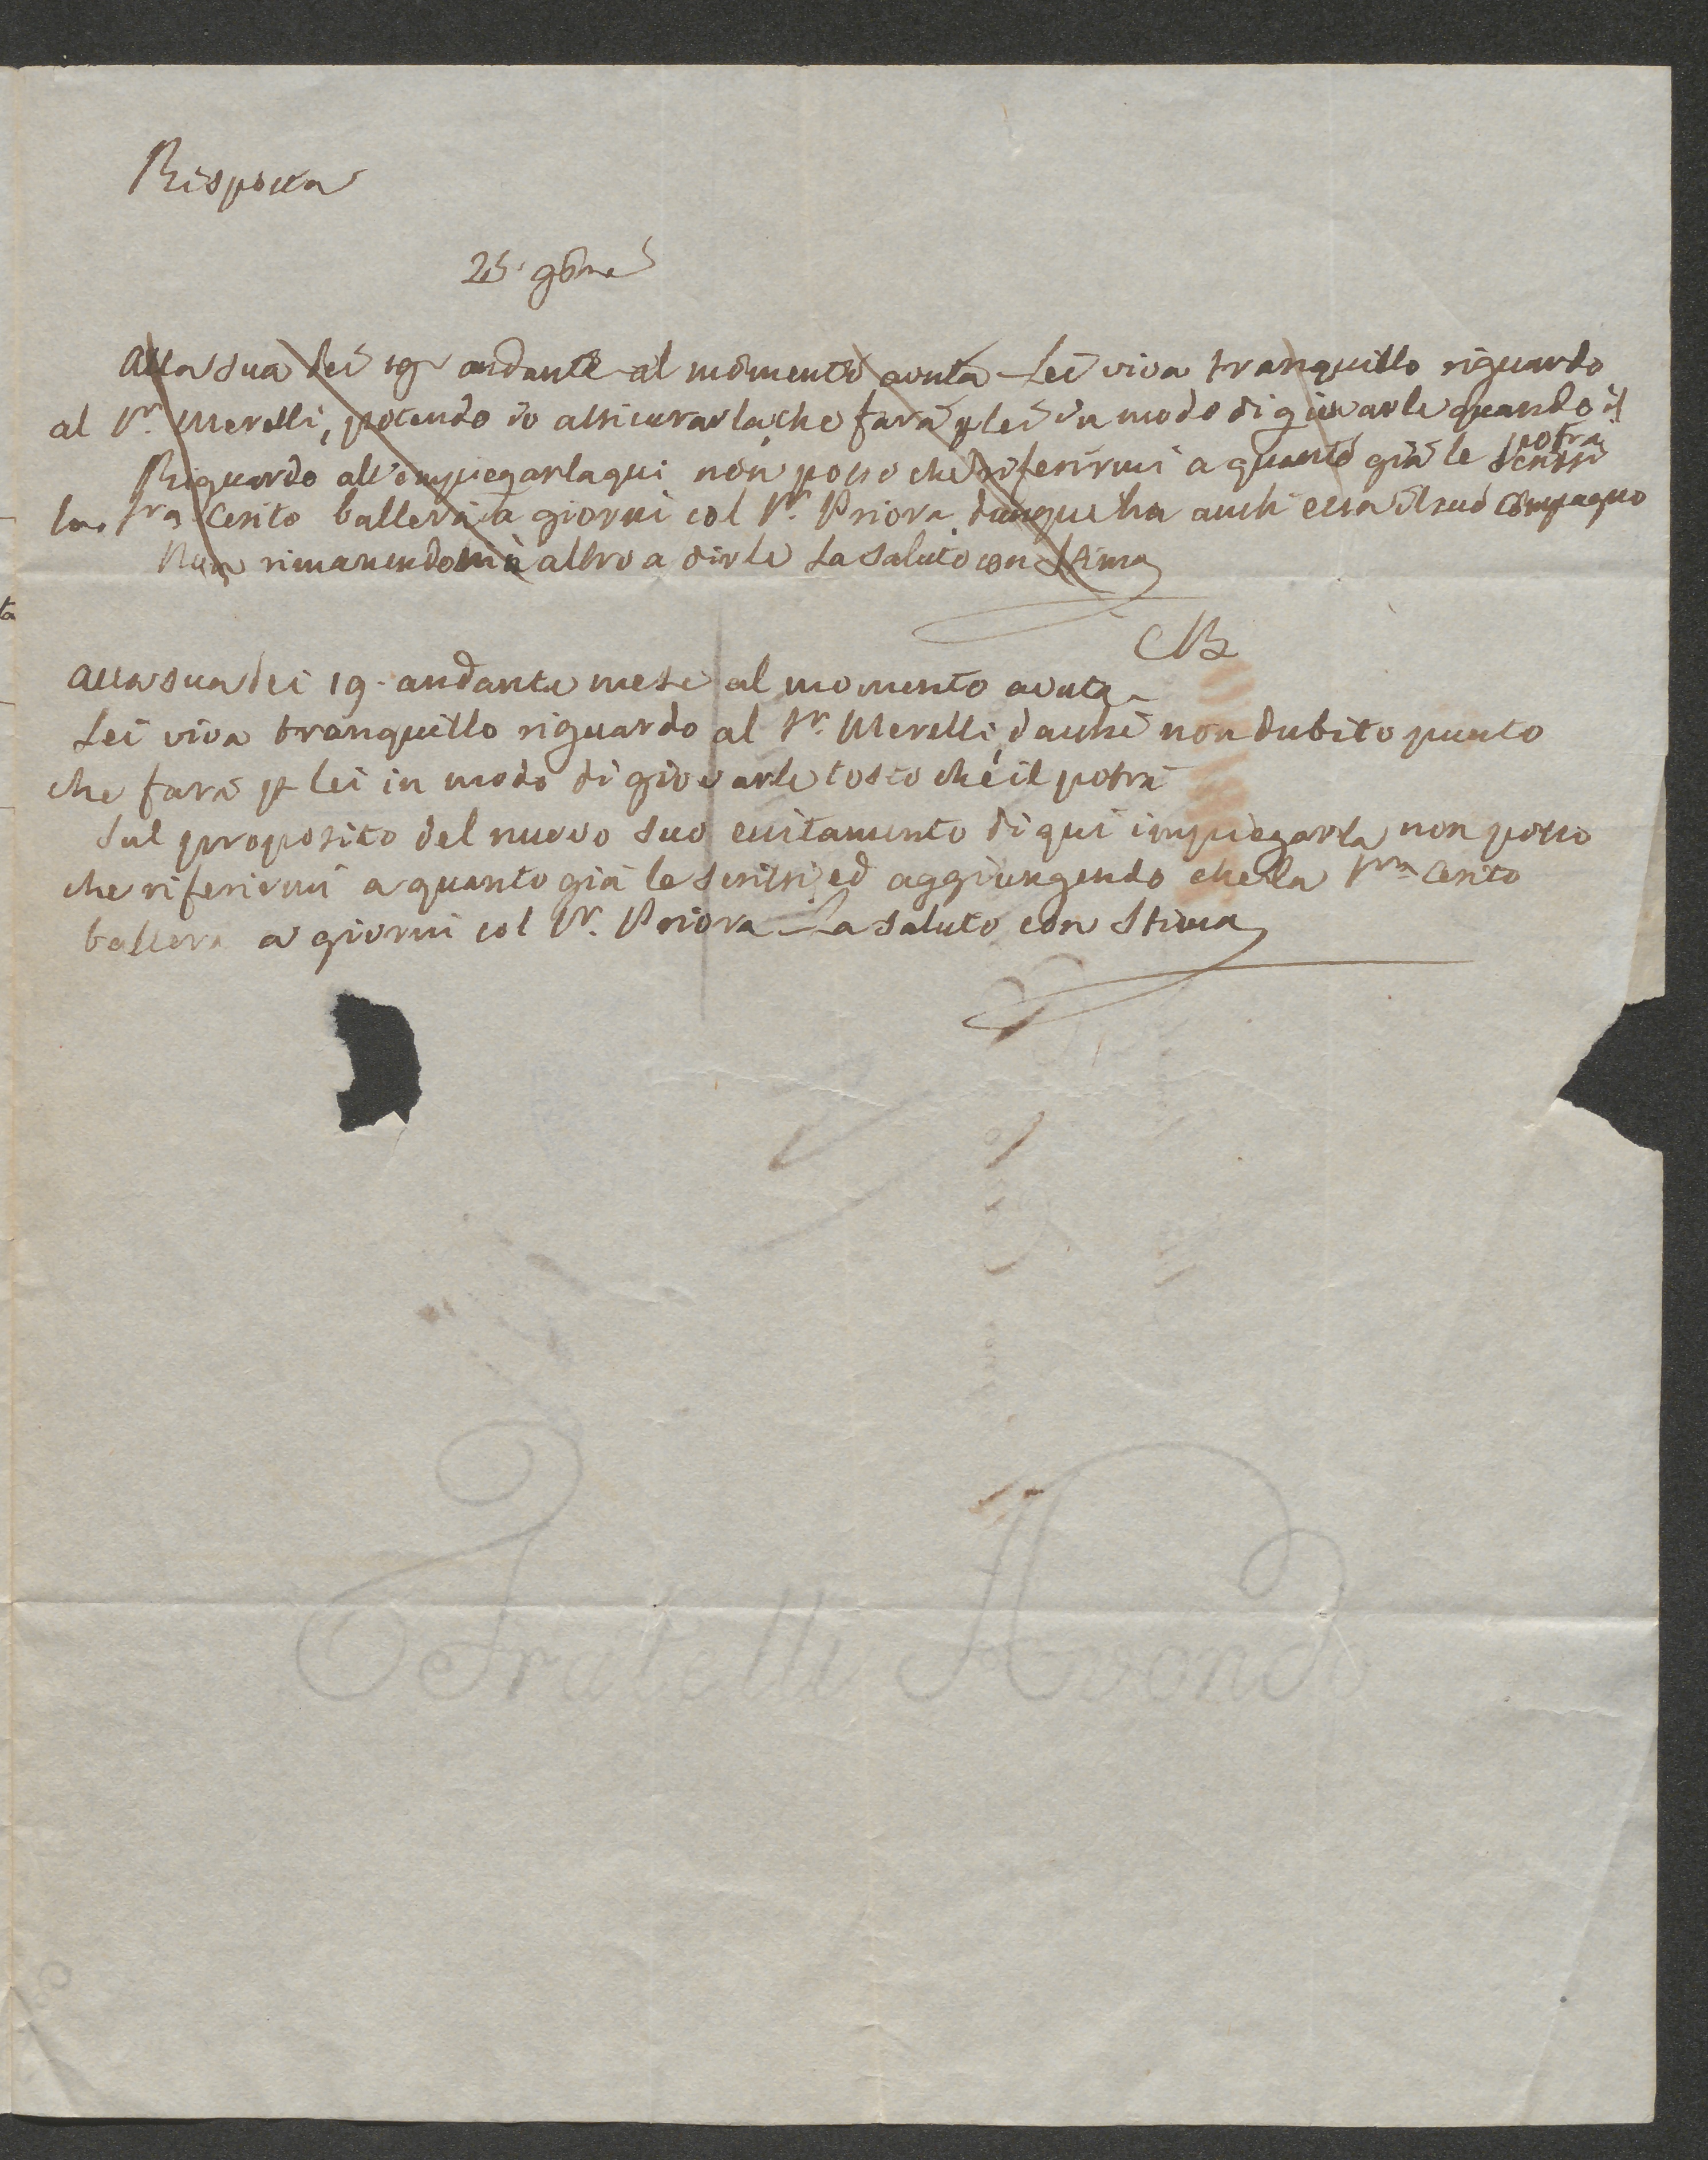 Risposta
25. 9bre
Alla sua dei 19 andante al momento avuta - Lei viva tranquillo riguardo
al Sr. Merelli, potendo io assicurarla, che farà p lei in modo di giovarle quando il potrà
Riguardo all'empiegarla qui non posso che riferirmi a quanto già le scrissi
la Sra Cerito ballerà a giorni col Sr. Priora dunque ha anch essa il suo compagno
Non rimanendomi altro a dirle La saluto con Stima
Alla sua dei 19. andante mese al momento avuta -
Lei viva tranquillo riguardo al Sr. Merelli, non dubito punto
che farà p lei in modo di giovarle tosto che il potrà
Sul proposito del nuovo suo eccitamento di qui impiegarla non posso
che riferirmi a quanto già le scrissi, ed aggiungendo che la Sra Cerito
ballerà a giorni col Sr. Priora - La saluto con Stima
Fratelli Avondo